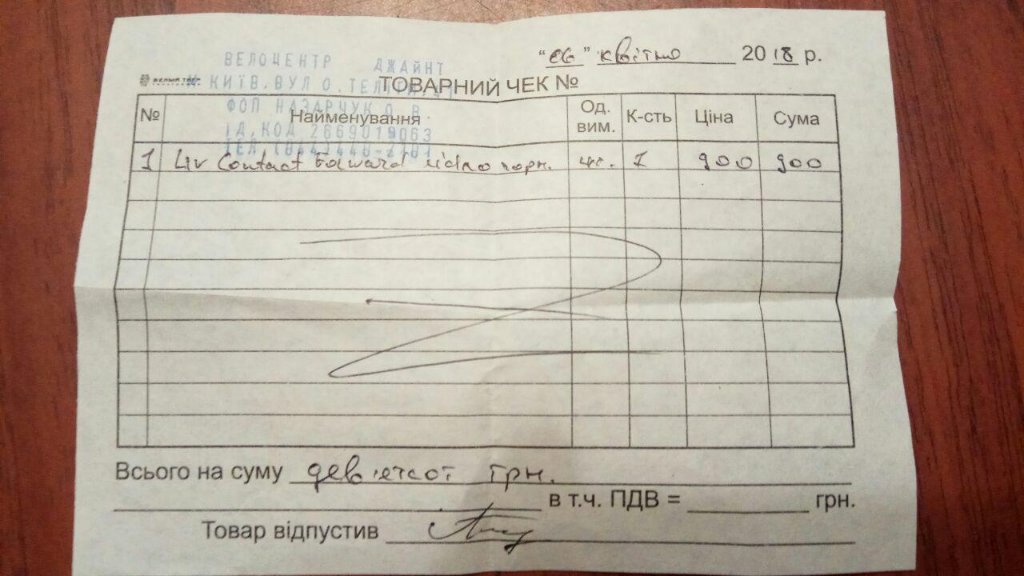 ВЕЛОЦЕНТР ДЖАЙНТ
КИЇВ.ВУЛ О.ТЕЛ
ФОП НАЗАРЧУК О.В.
ІД.КОД 2669019063
"06" квітня 2018 р.
ТОВАРНИЙ ЧЕК №
№ Найменування Од. вим. К-сть Ціна Сума
1 Liv Contact Forward чорн. шт. 1 900 900
Всього на суму дев'ятсот грн.
в т.ч. ПДВ = грн.
Товар відпустив